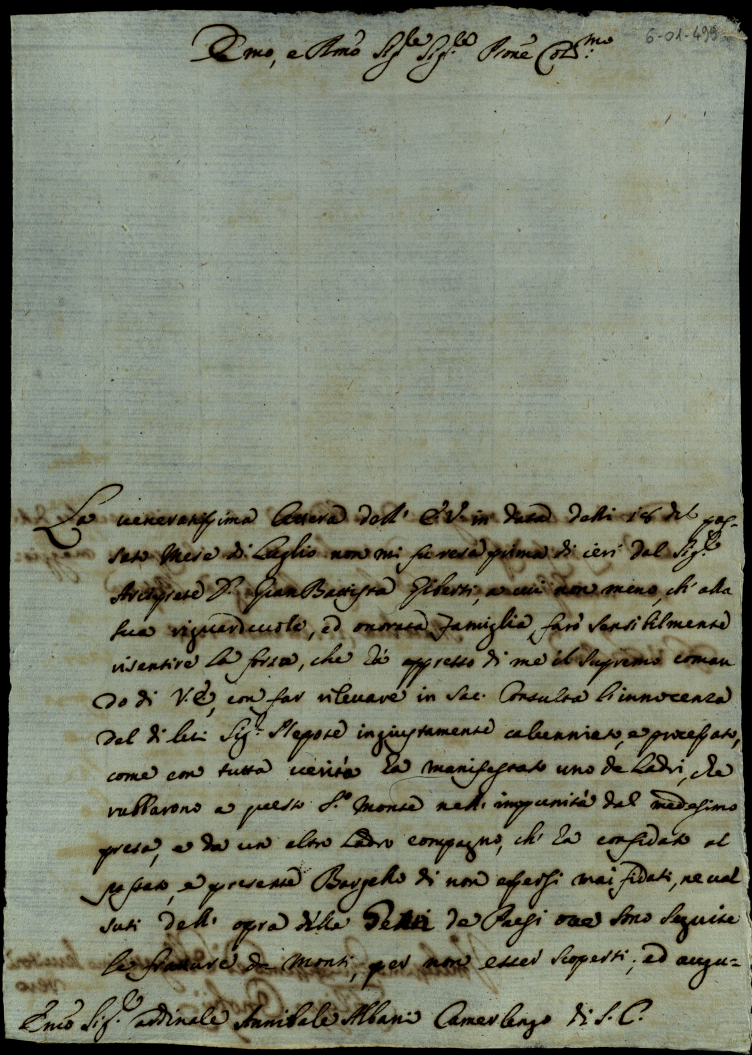 6-01-499
Emo, e Rmo Sig.re Sig.re Prone Col.mo
La veneratissima lettera dell' E.V. in data delli 18 del pas=
sato Mese di Luglio non mi fu resa prima di ieri dal Sig.r
Arciprete D. Gian Battista Giberti, a cui non meno, ch' alla
sua riguardevole, ed onorata famiglia farò sensibilmente
risentire la forza, che hà appresso di me il supremo coman
do di V.E, con far rilevare in Sac. Consulta l'innocenza
del di lei Sig.r Nepote ingiustamente calunniato, e processato,
come con tutta verità hà manifestato uno de Ladri, che
rubbarono a questo S. Monte nell' impunità dal medesimo
presa, e da un altro Ladro compagno, ch' hà confidato al
passato, e presente Bargello di non essersi mai fidati, ne val
suti dell' opra della Genti de Paesi ove sono seguite
le fratture de Monti, per non esser scoperti; ed augu=
Emo Sig.re Cardinale Annibale Albani Camerlengo di S. C.